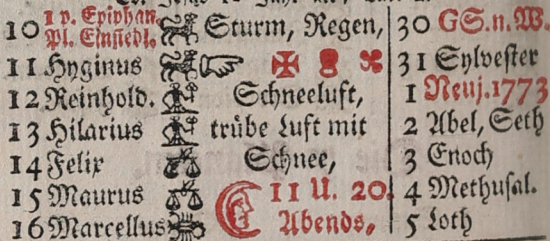 10 1 v. Epiphan. Sturm, Regen, 30 GS.n.W.
Pl. Einsiedl.
11 Hyginus 31 Sylvester
12 Reinhold. Schneeluft, 1 Neuj. 1773
13 Hilarius trübe Luft mit 2 Abel, Seth
14 Felix Schnee, 3 Enoch
15 Maurus 11 U. 20. 4 Methusal.
16 Marcellus Abends, 5 Loth